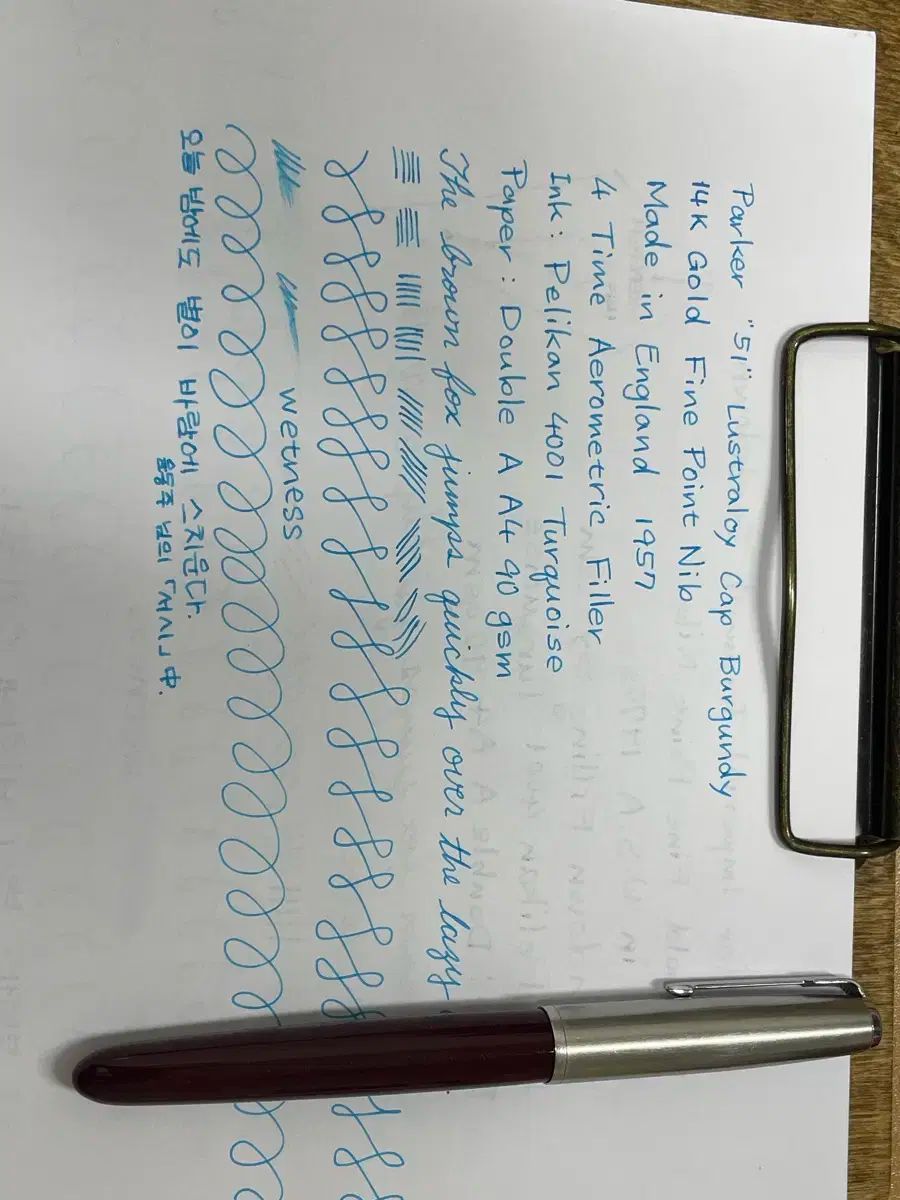 Parker "51" Lustraloy Cap Burgundy
14K Gold Fine Point Nib
Made in England 1957
4 Time Aerometric Filler
Ink: Pelikan 4001 Turquoise
Paper: Double A A4 90 gsm
The brown fox jumps quickly over the lazy
wetness
오늘 밤에도 별이 바람에 스치운다.
윤동주 님의 「서시」 中.